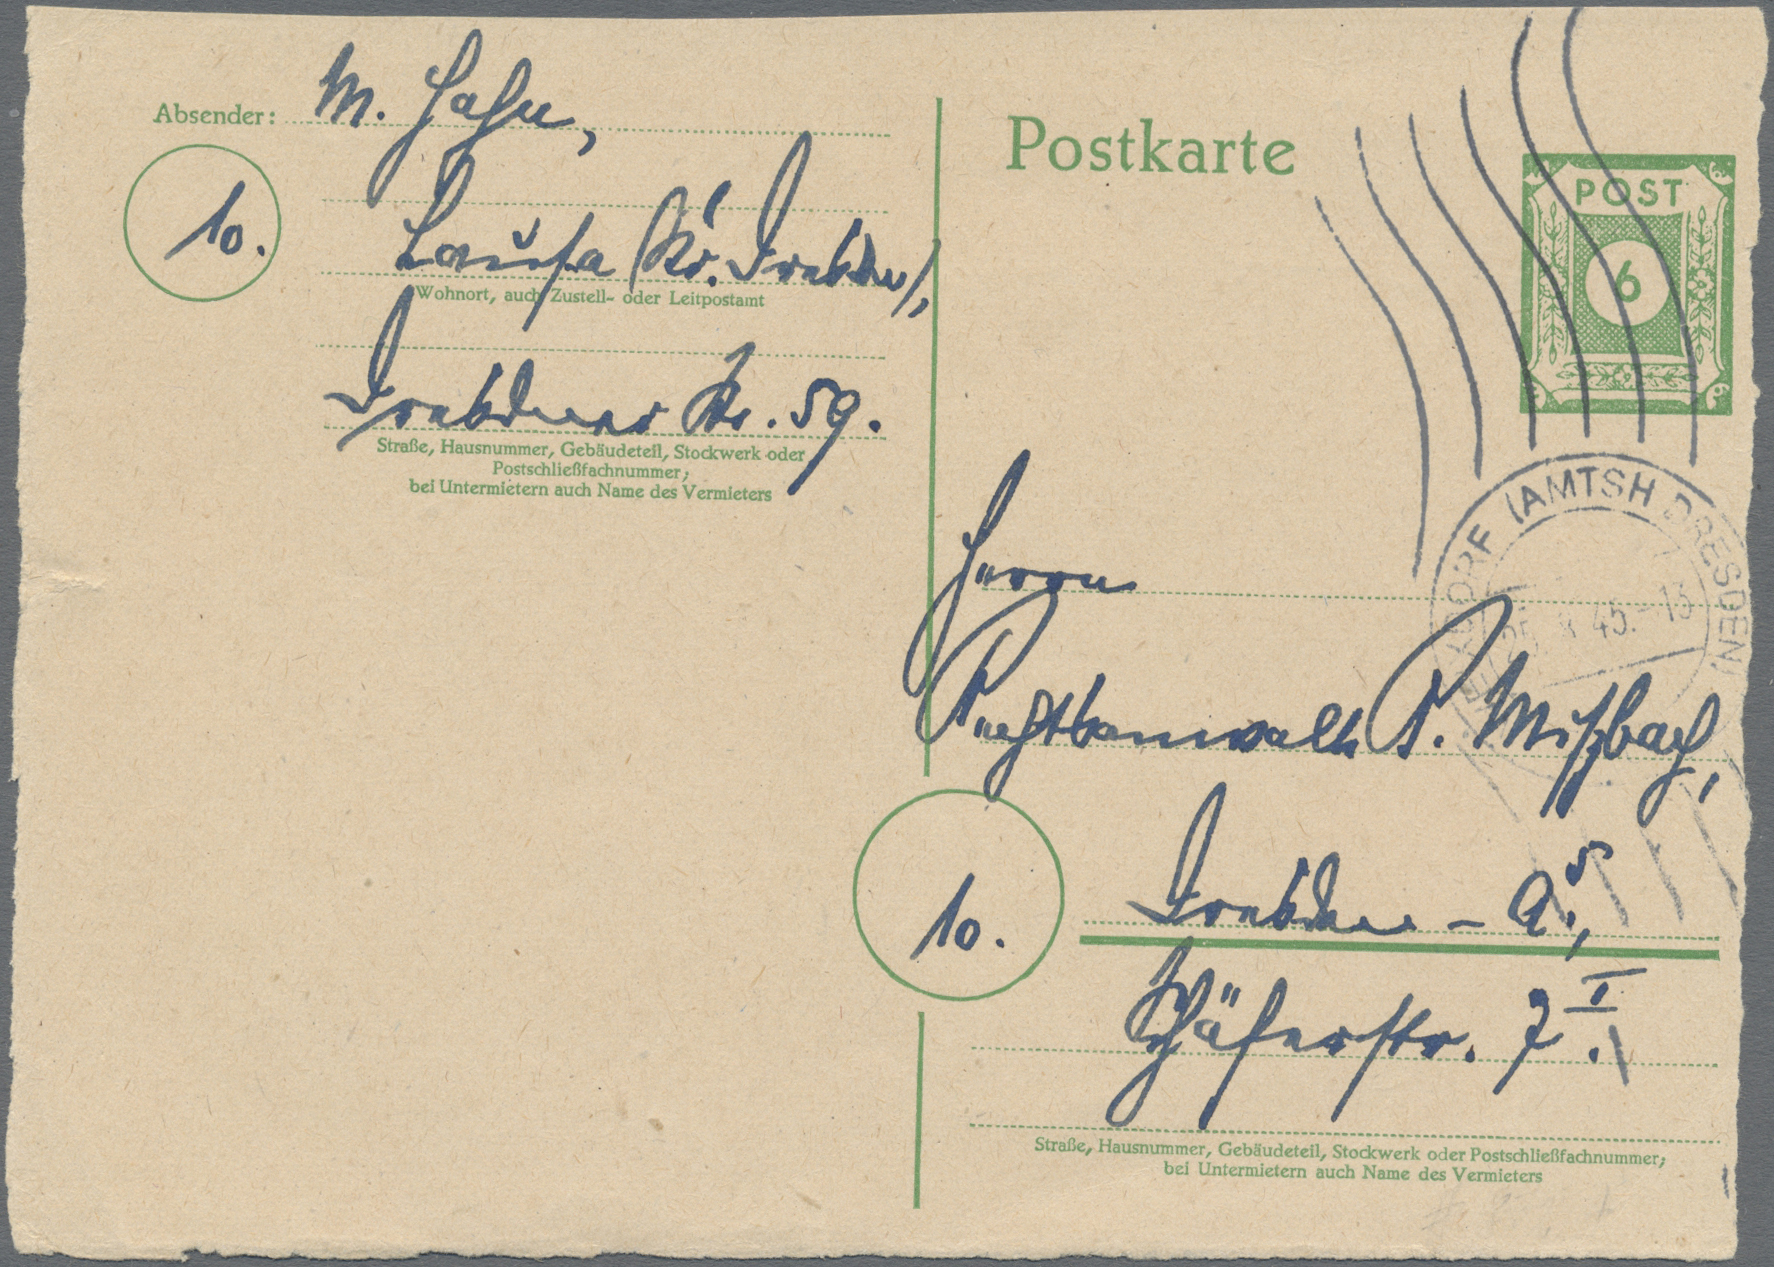 Absender: M. Hahn,
10.
Lausa (Kr. Dresden),
Wohnort, auch Zustell- oder Leitpostamt
Dresdener Str. 59.
Straße, Hausnummer, Gebäudeteil, Stockwerk oder
Postschließfachnummer;
bei Untermietern auch Name des Vermieters
Postkarte
POST
6
(AMTSH DRESDEN)
45.-13
Herrn
Rechtsanwalt P. Mißbach,
10.
Dresden - A.5,
Schäferstr. 7 I.
Straße, Hausnummer, Gebäudeteil, Stockwerk oder Postschließfachnummer;
bei Untermietern auch Name des Vermieters